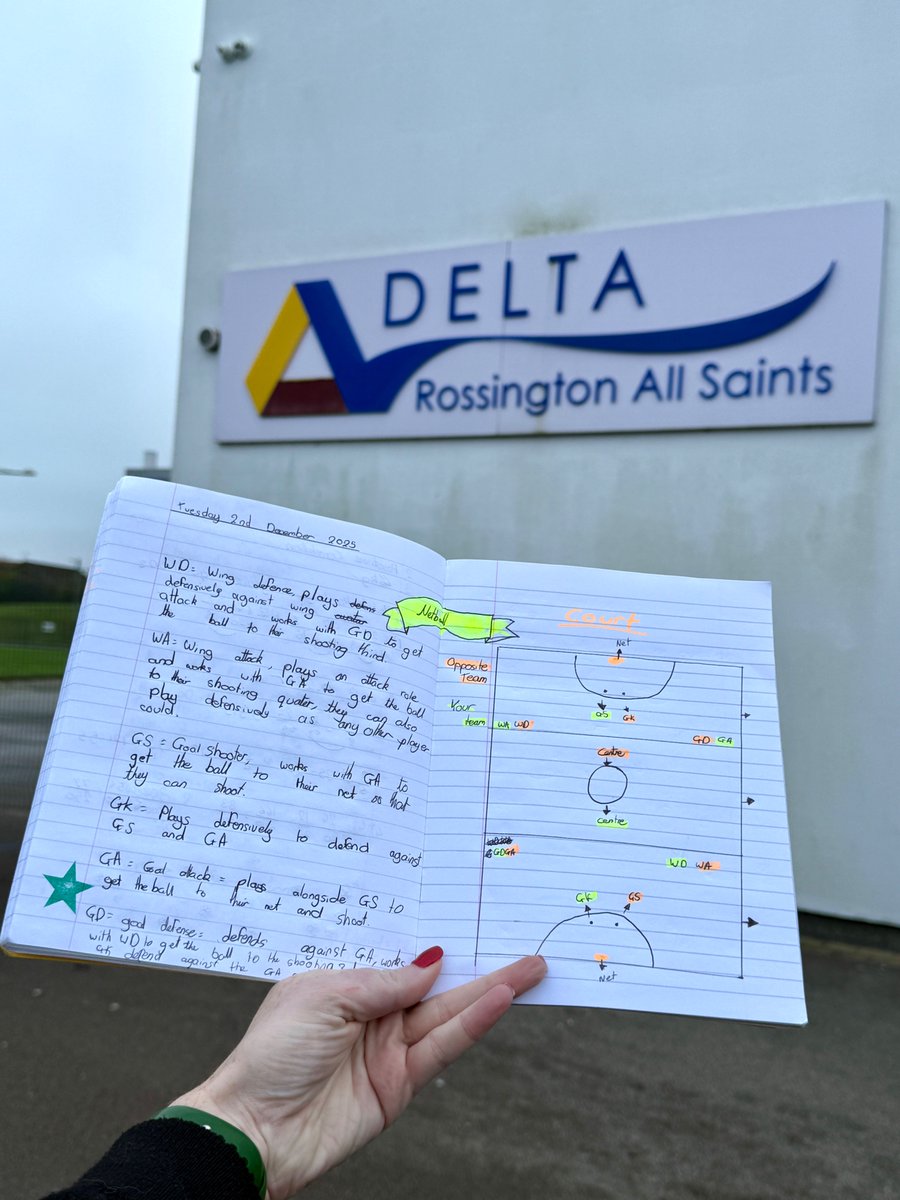 DELTA
Rossington All Saints
Tuesday 2nd December 2025
WD = Wing defence, plays
defensively against wing
attack and works with GD to get
the ball to their shooting third.
WA = Wing attack, plays an attack role
and works with GA to get the ball
to their shooting quater, they can also
play defensively as any other player
could.
GS = Goal shooter, works with GA to
get the ball to their net so that
they can shoot.
GK = Plays defensively to defend against
GS and GA
GA = Goal attack = plays alongside GS to
get the ball to their net and shoot.
GD = goal defense = defends against GA, works
with WD to get the ball to the shooting
GK defend against the GA
Netball
Court
Net
Opposite
Team
GS GK
Your
team
WA WD
GD GA
Centre
Centre
GD GA
WD WA
GK GS
Net